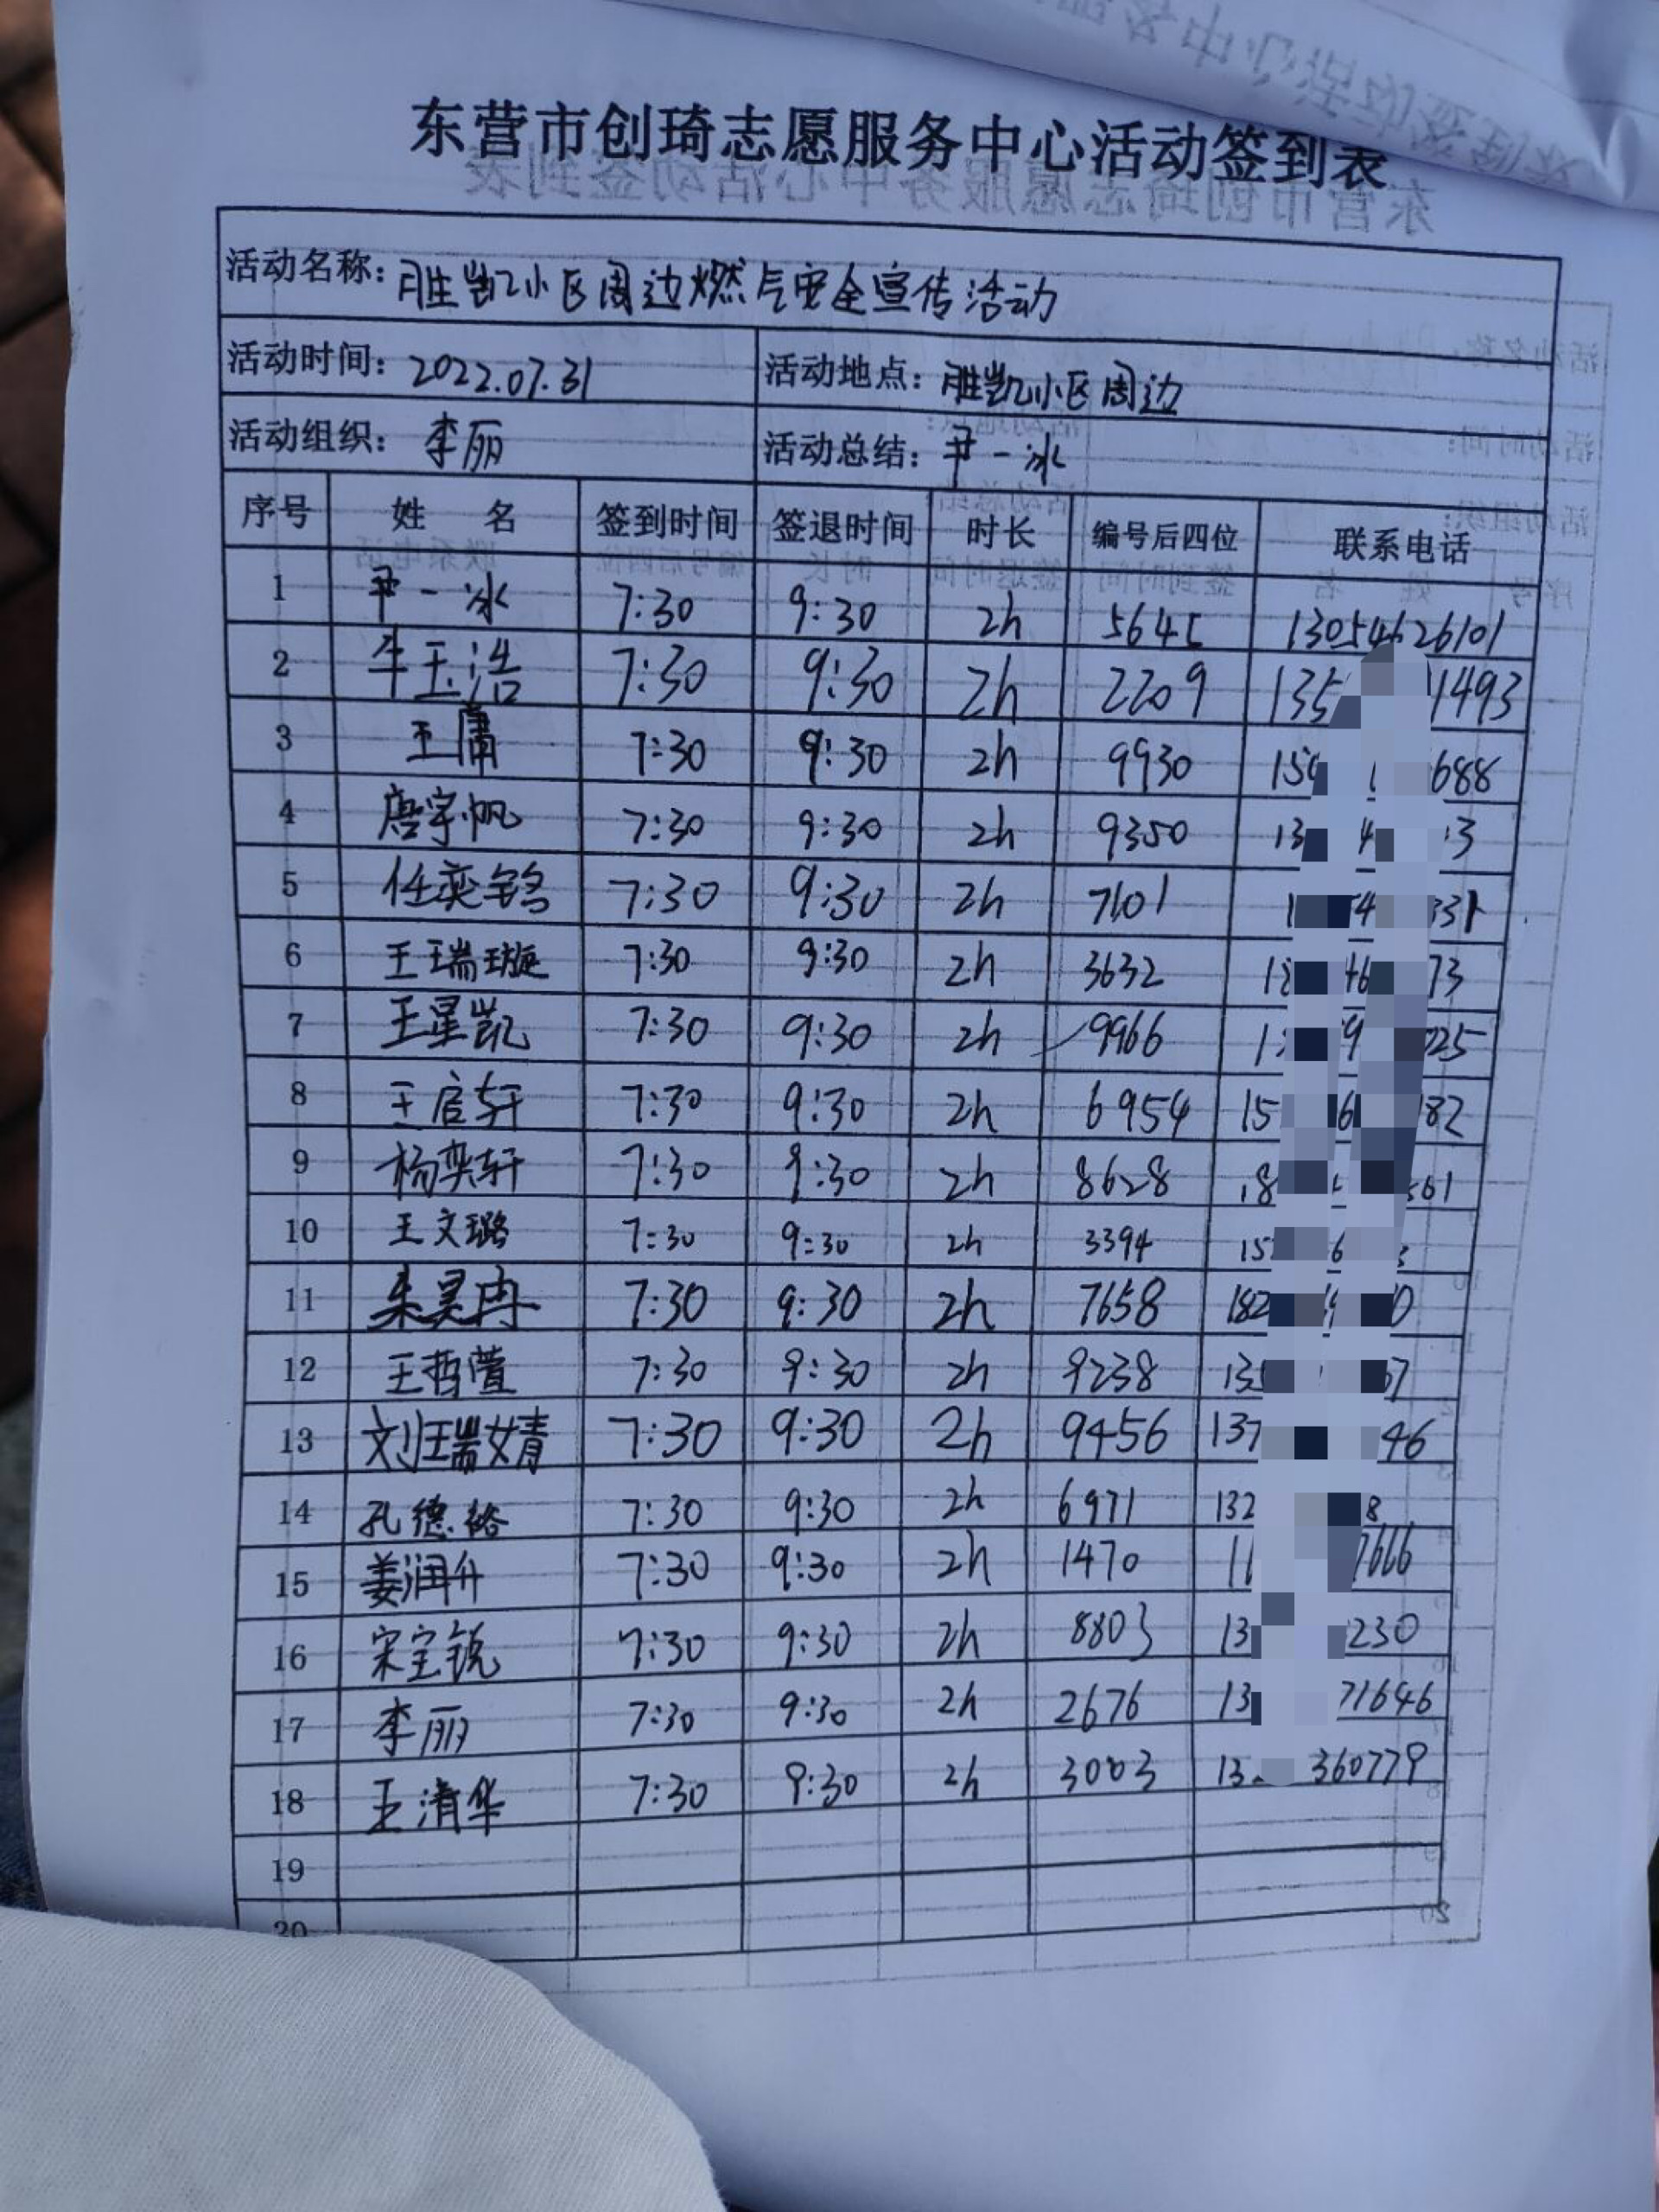 东营市创琦志愿服务中心活动签到表
活动名称: 胜凯小区周边燃气安全宣传活动
活动时间: 2022.07.31 活动地点: 胜凯小区周边
活动组织: 李丽 活动总结: 尹一冰
序号 姓 名 签到时间 签退时间 时长 编号后四位 联系电话
1 尹一冰 7:30 9:30 2h 5645 13054626101
2 牛玉浩 7:30 9:30 2h 2209 135 1493
3 王庸 7:30 9:30 2h 9930 688
4 唐宇帆 7:30 9:30 2h 9350 13 4 3
5 任奕 7:30 9:30 2h 7101 4
6 王瑞璇 7:30 9:30 2h 3632 18 46 73
7 王星凯 7:30 9:30 2h 9966 1 9 025
8 王启轩 7:30 9:30 2h 6954 15 6 182
9 杨奕轩 7:30 9:30 2h 8628 18 61
10 王文璐 7:30 9:30 2h 3394 15 6
11 朱昊冉 7:30 9:30 2h 7658 182 0
12 王哲萱 7:30 9:30 2h 9238 135 7
13 刘瑞婧 7:30 9:30 2h 9456 137 46
14 孔德裕 7:30 9:30 2h 6971 132 8
15 姜润升 7:30 9:30 2h 1470 7666
16 宋宝锐 7:30 9:30 2h 8803 13 230
17 李丽 7:30 9:30 2h 2676 13 71646
18 王清华 7:30 9:30 2h 3003 13 360779
19
20